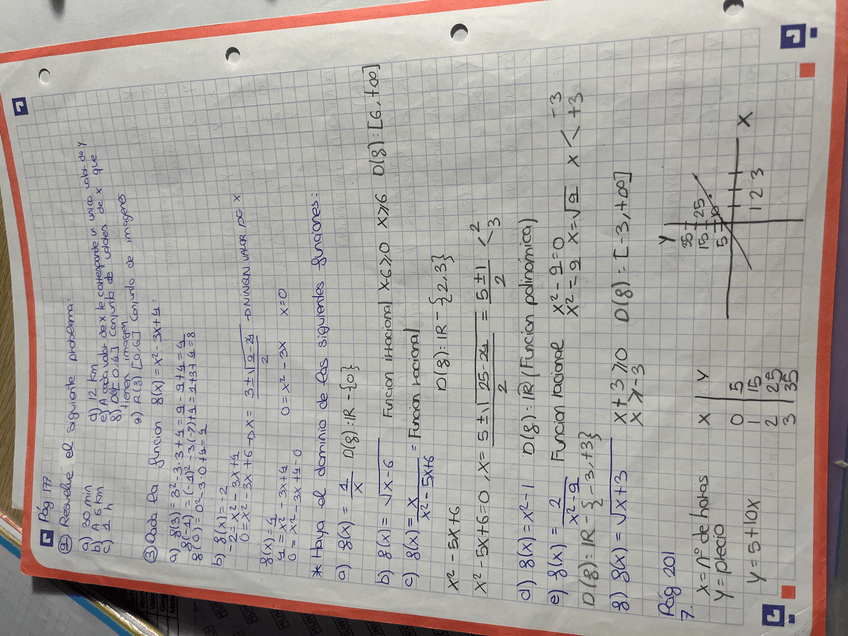 Pág 177
2 Resuelve el siguiente problema:
a) 30 min
b) A 6 km
c) 1 h
d) 12 km
e) A cada valor de x le corresponde un unico valor de y
f) D(f) [0,4] conjunto de valores de x que
tienen imagen
g) R(f) [0,6] conjunto de imagenes
3 Dada la funcion f(x) = x²-3x+4:
a) f(3) = 3²-3·3+4 = 9-9+4 = 4
f(-1) = (-1)²-3·(-1)+4 = 1+3+4 = 8
f(0) = 0²-3·0+4 = 4
b) f(x) = -2
-2 = x²-3x+4
0 = x²-3x+6 → x =
3±√9-24
2
f(x) = 4
4 = x²-3x+4
0 = x²-3x+4-4
0 = x²-3x x=0
* Haya el dominio de las siguientes funciones:
a) f(x) = 1/x D(f): IR-{0}
b) f(x) = √x-6 Funcion irracional x-6≥0 x≥6 D(f): [6,+∞]
c) f(x) = x/x²-5x+6 = Funcion racional
x²-5x+6 D(f): IR-{2,3}
x²-5x+6=0, x = 5±√25-24/2 = 5±1/2 < 2
3
d) f(x) = x²-1 D(f): IR (Funcion polinómica)
e) f(x) = 2/x²-9 Funcion racional x²-9=0
x²=9 x=√9 x < -3
+3
D(f): IR-{-3,+3}
f) f(x) = √x+3 x+3≥0 D(f) = [-3,+∞]
x≥-3
Pág 201
7. x = nº de horas
y = precio
y = 5+10x
X Y
0 5
1 15
2 25
3 35
Y
35
25
15
5
1 2 3
X